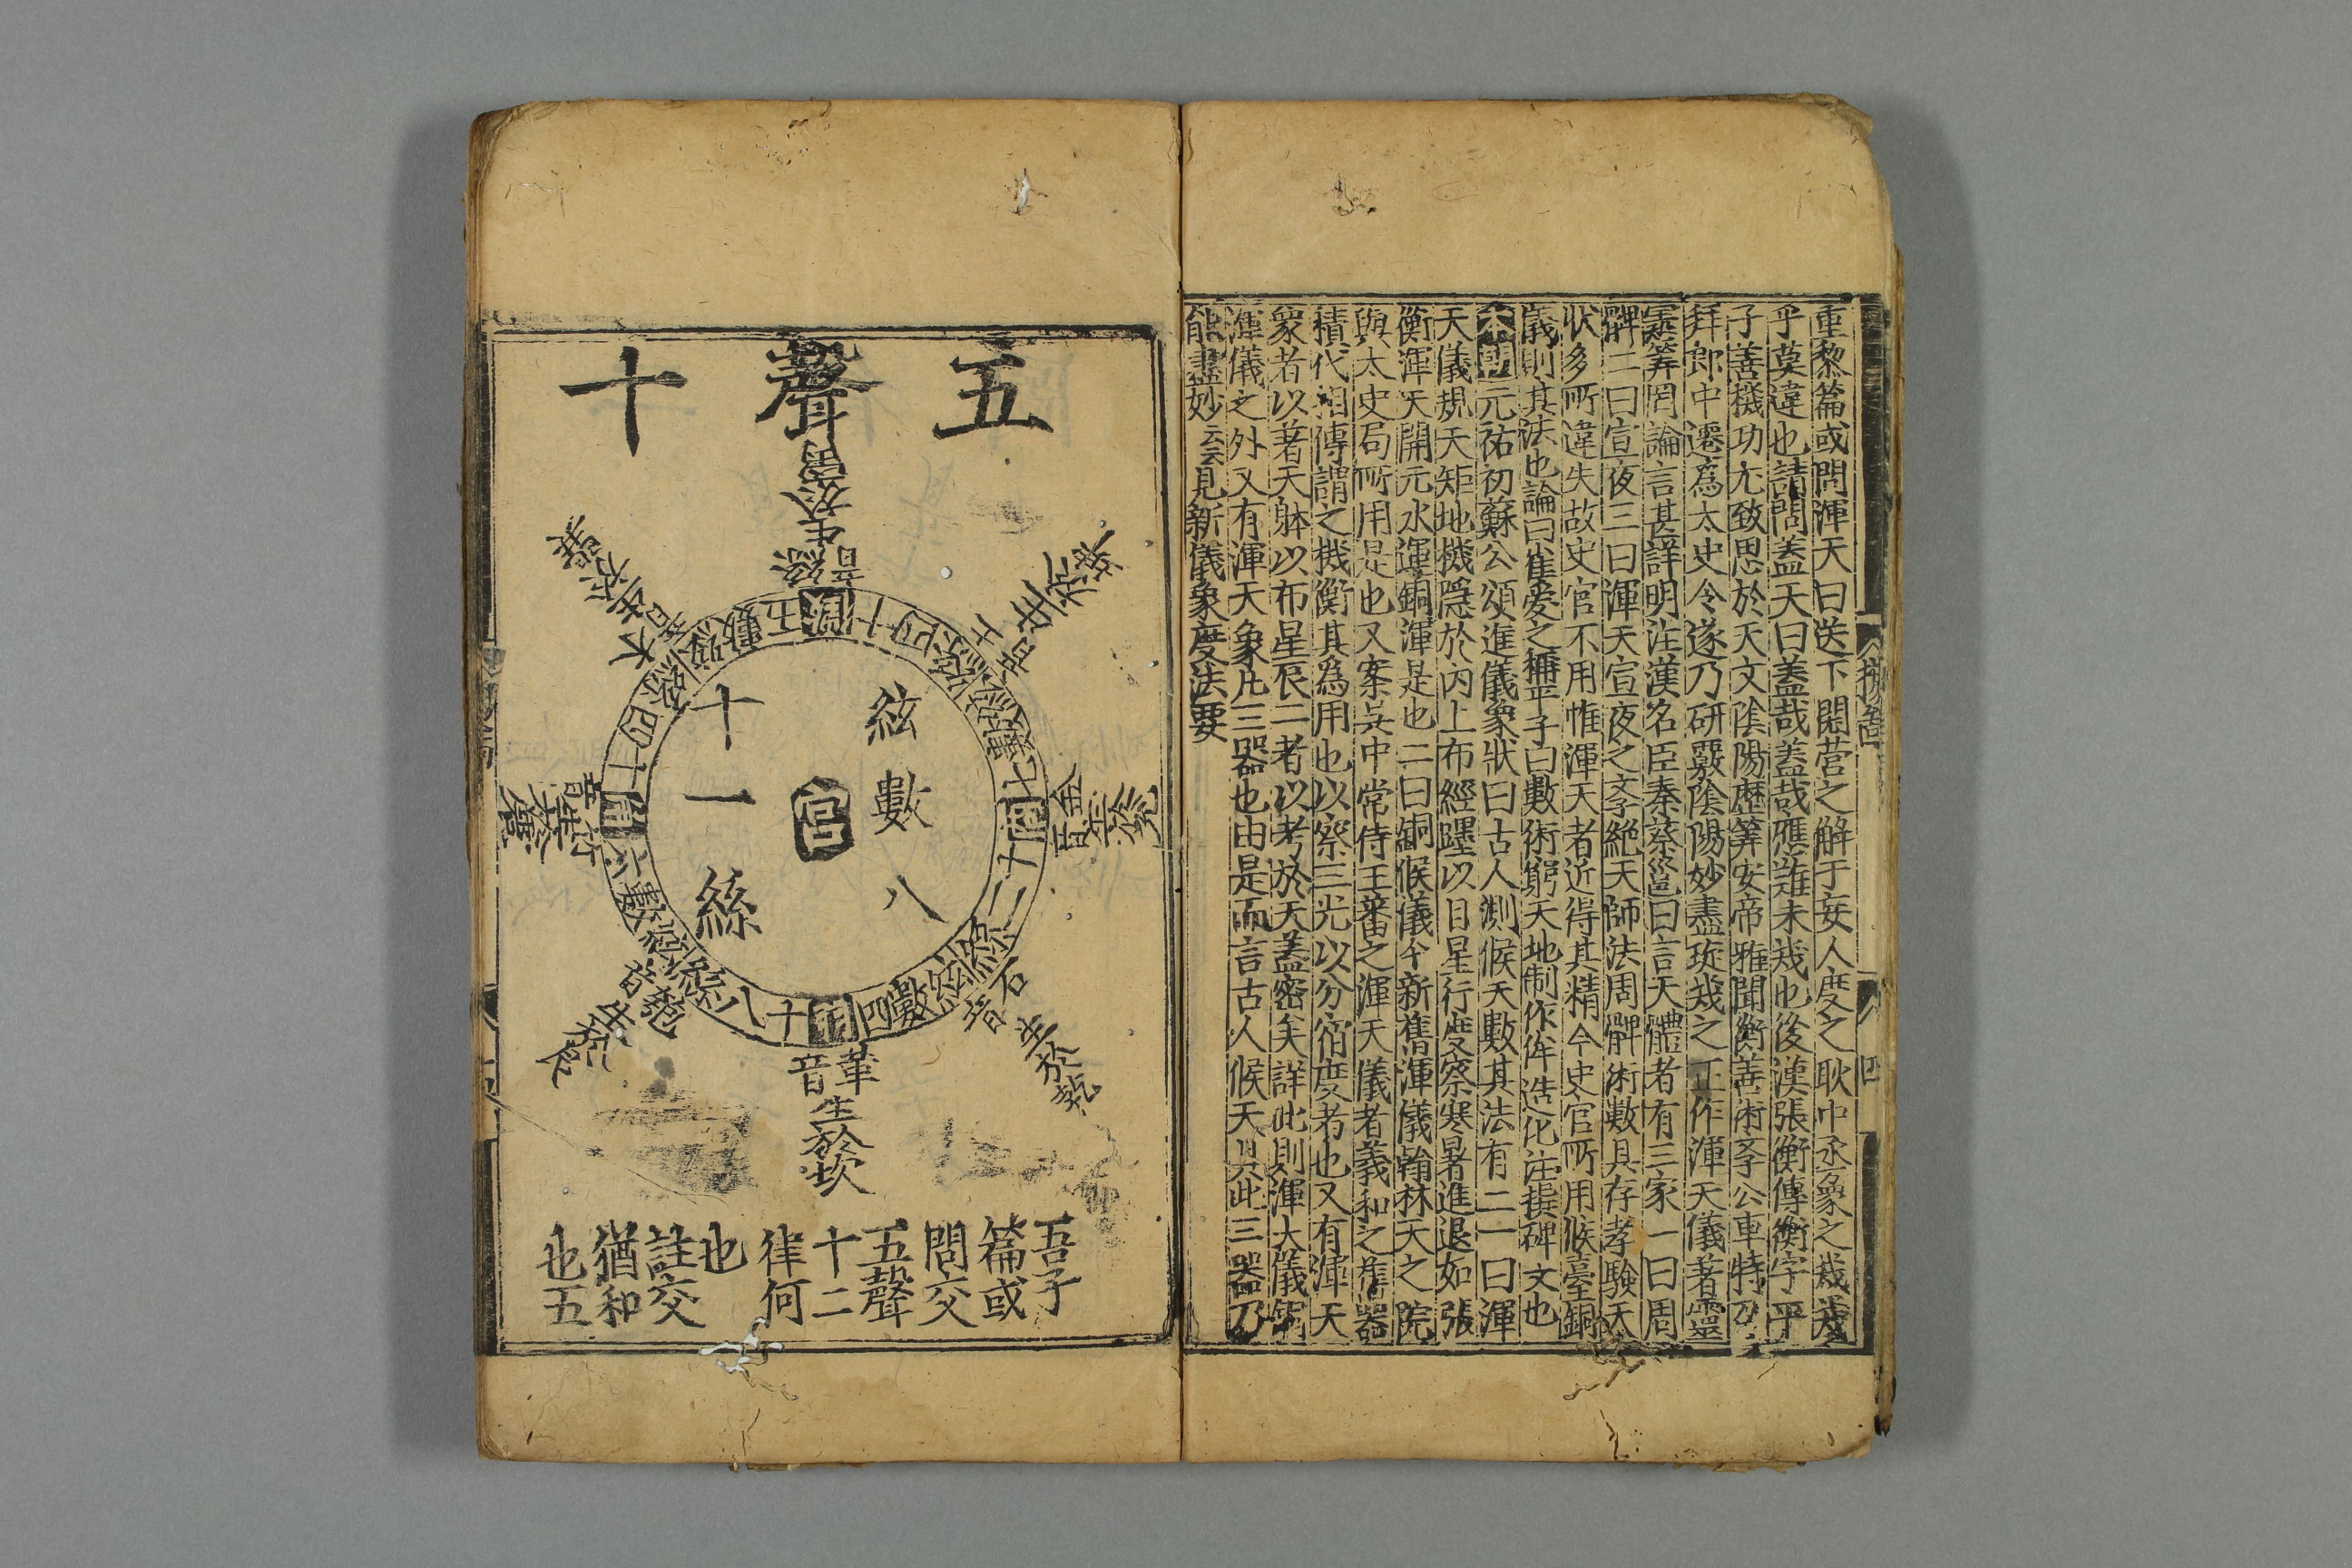 重黎篇或問渾天曰送下閎營之鮮于妄人度之耿中丞象之幾幾
乎莫違也請問蓋天曰蓋哉蓋哉應難未幾也後漢張衡傳衡字平
子善機功尤致思於天文陰陽歷筭安帝雅聞衡善術孝公車特
拜郎中遷爲太史令遂乃研覈陰陽妙盡琁璣之正作渾天儀著靈
憲筭罔論言甚詳明注漢名臣奏蔡邕曰言天體者有三家一曰周
髀二曰宣夜三曰渾天宣夜之孝絶天師法周髀術數具存孝驗天
狀多所違失故史官不用惟渾天者近得其精今史官所用候臺銅
儀則其法也論曰崔爰之稱平子曰數術窮天地制作侔造化注撰碑文也
本朝元祐初蘇公頌進儀象狀曰古人測候天數其法有二一曰渾
天儀規天矩地機隱於內上布經躔以日星行度察寒暑進退如張
衡渾天開元水運銅渾是也二曰銅候儀今新舊渾儀翰林天之院
與太史局所用是也又案吳中常侍王蕃之渾天儀者羲和之舊器
積代相傳謂之機衡其爲用也以察三光以分宿度者也又有渾天
象者以著天躰以布星辰二者以考於天蓋密矣詳此則渾天儀銅
渾儀之外又有渾天象凡三器也由是而言古人候天具此三器乃
能盡妙云云見新儀象度法要
四
五聲十
絲音生於离
土音生於坤
金音生於兌
石音生於乾
革音生於坎
匏音生於艮
竹音生於震
木音生於巽
宮
絃數八
十一絲
吾子
篇或
問交
五聲
十二
律何
也
註交
猶和
也五